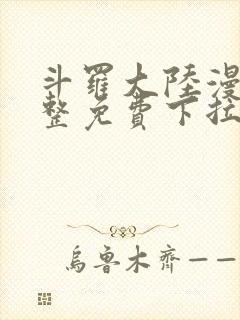 斗羅大陸漫
整免費下拉
烏魯木齊——